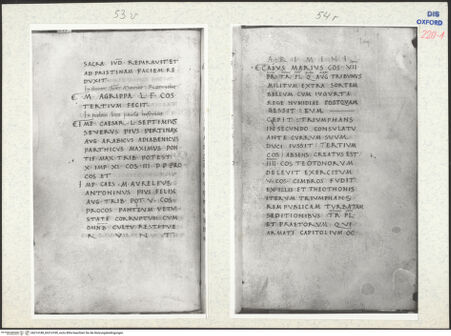 53v
54r
DIS
OXFORD
220-1
SACRA IVD. REPARAVIT ET
AD PRISTINAM FACIEM RE
DVXIT
M AGRIPPA L F COS
TERTIVM FECIT
IMP CAESAR L SEPTIMIVS
SEVERVS PIVS PERTINAX
AVG ARABICVS ADIABENICVS
PARTHICVS MAXIMVS PON
TIF MAX TRIB POTEST
X IMP XI COS III P P PRO
COS ET
IMP CAES M AVRELIVS
ANTONINVS PIVS FELIX
AVG TRIB POT V COS
PROCOS PANTEVM VETV
STATE CORRVPTVM CVM
OMNI CVLTV RESTITVE
R V N T
ARIMINI
CAIVS MARIVS COS VII
PR TR PL Q AVG TRIBVNVS
MILITVM EXTRA SORTEM
BELLVM CVM IVGVRTA
REGE NVMIDIAE POSTQVAM
GESSIT EVM
CEPIT TRIVMPHANS
IN SECVNDO CONSVLATV
ANTE CVRRVM SVVM
DVCI IVSSIT TERTIVM
COS ABSENS CREATVS EST
IIII COS TEOTONORVM
DELEVIT EXERCITVM
V COS CIMBROS FVDIT
EX ILLIS ET THEOTHONIS
ITERVM TRIVMPHANS
REM PVBLICAM TVRBATAM
SEDITIONIBVS TR PL
ET PRAETORVM QVI
ARMATI CAPITOLIVM OC